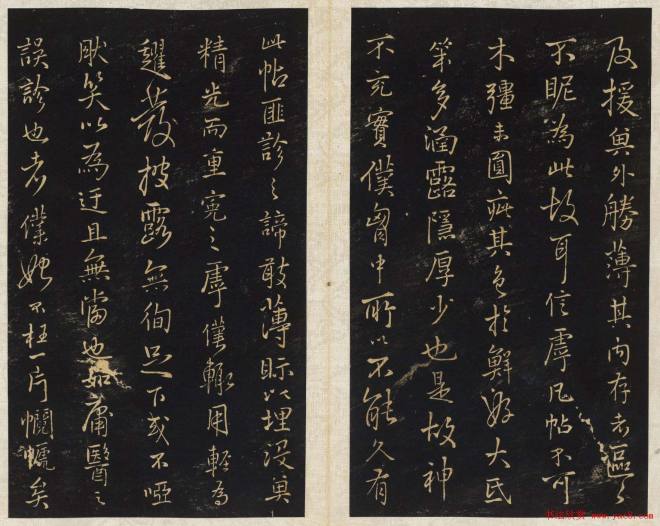 及援與外勝薄其內存者區
不昵為此故耳信虖凡帖不可
木彊未圓疵其色於鮮澤大氐
筆多涵露隱厚少也是故神
不充實僕胷中所以不能久有
此帖匪診之諦敢薄眎以埋沒其
精光而重寃之虖僅輙用輕為
趯發披露無徇足下或不啞
肰笑以為迂且無當也如庸醫之
誤診也者僕始不枉一片懶矣